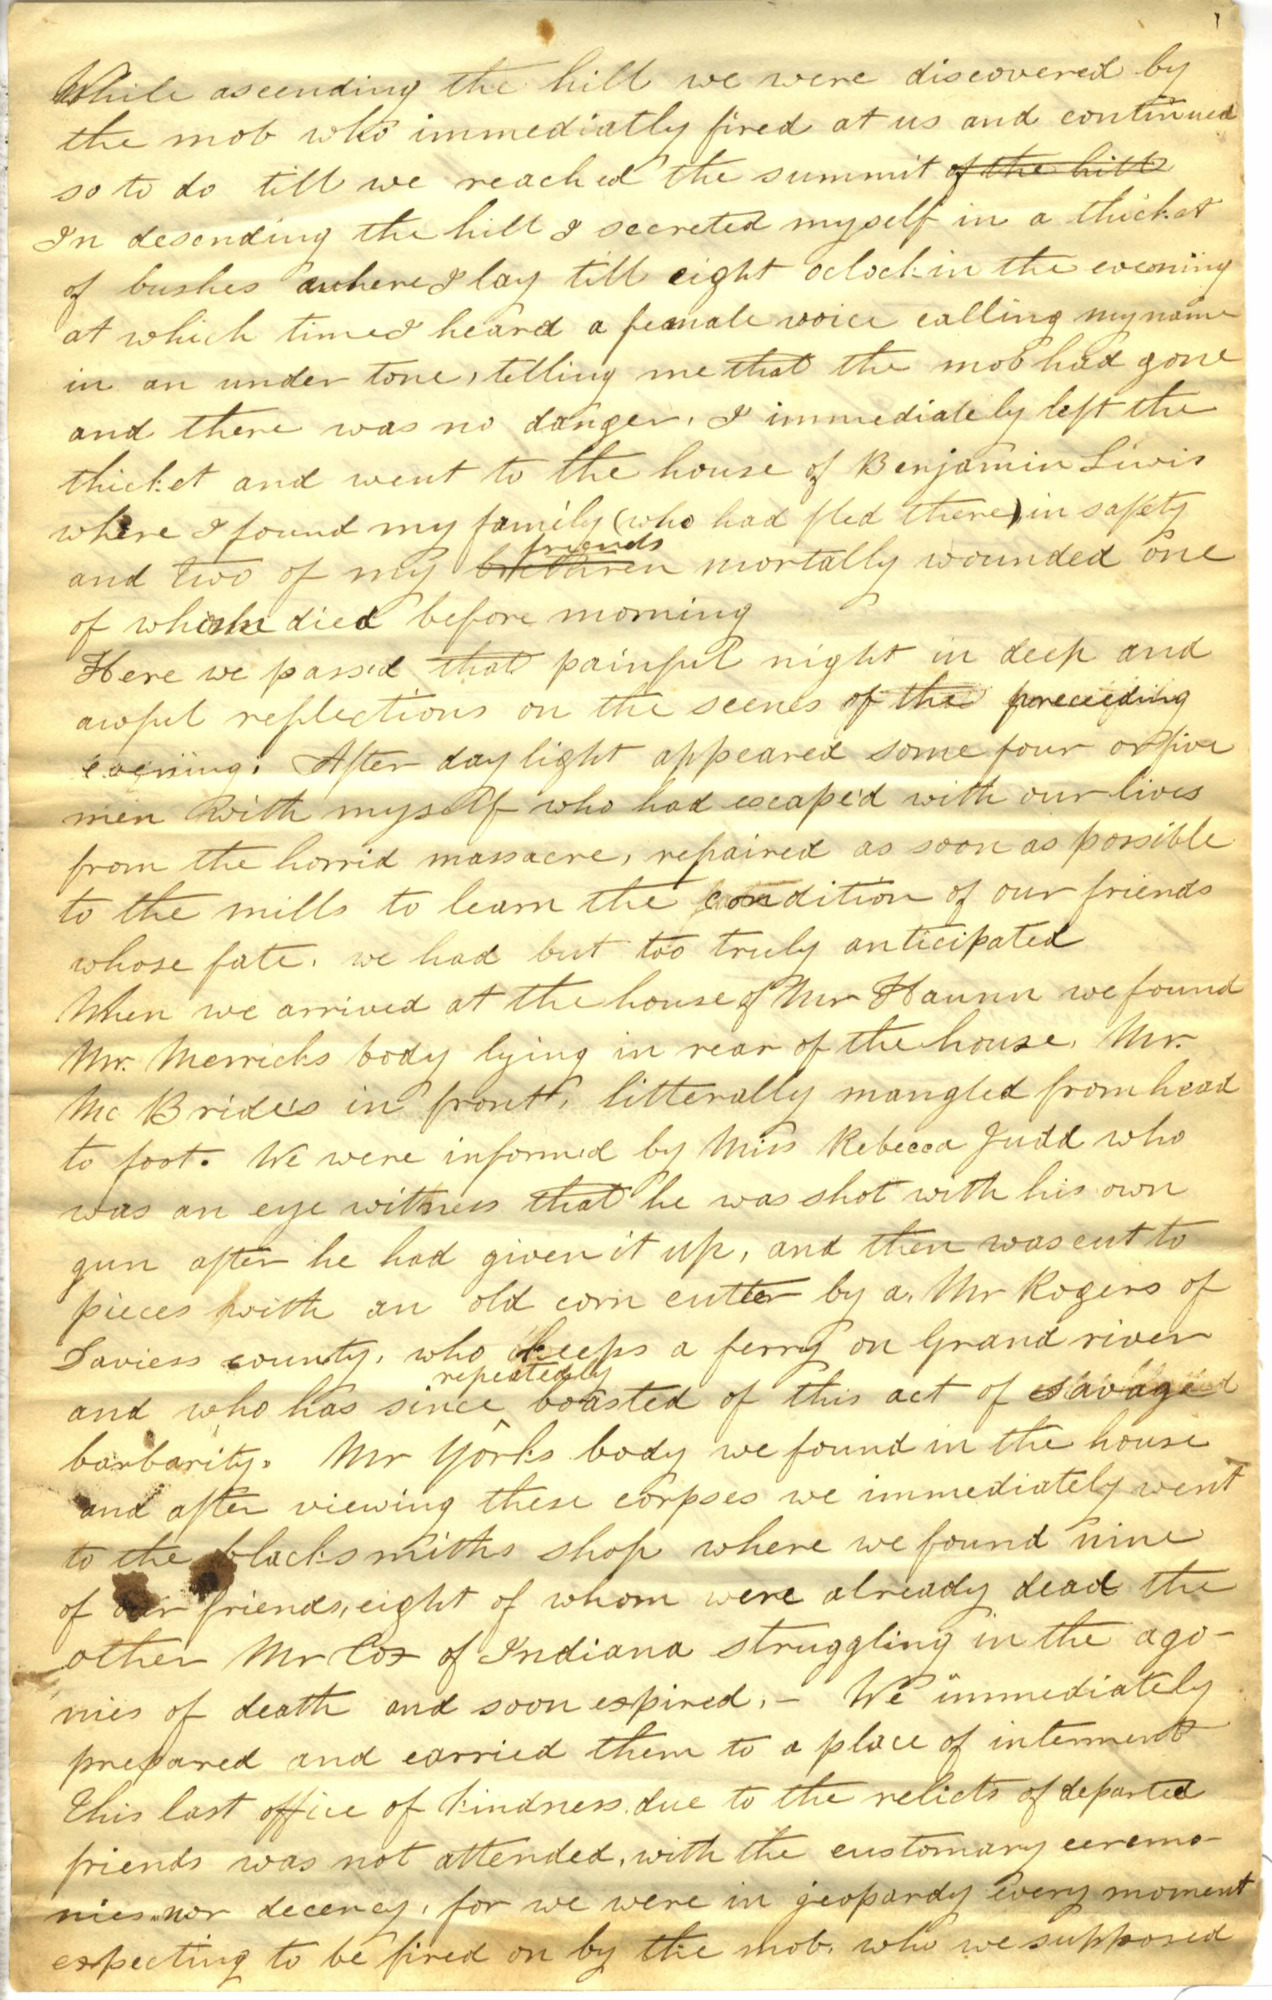 While ascending the hill we were discovered by
the mob who immediatly fired at us and continued
so to do till we reached the summit of the hill
In desending the hill I secreted myself in a thicket
of bushes where I lay till eight oclock in the evening
at which time I heard a female voice calling my name
in an under tone, telling me that the mob had gone
and there was no danger. I immediately left the
thicket and went to the house of Benjamin Liwis
where I found my family (who had fled there) in safety
friends
and two of my brethren mortally wounded one
of whom died before morning
Here we passed that painful night in deep and
awful reflections on the scenes of the preceeding
evening. After day light appeared some four or five
men with myself who had escaped with our lives
from the horrid massacre, repaired as soon as possible
to the mills to learn the condition of our friends
whose fate. we had but too truly anticipated
When we arrived at the house of Mr Haunn we found
Mr. Merricks body lying in rear of the house. Mr.
Mc Brides in front, litterally mangled from head
to foot. We were informed by Miss Rebecca Judd who
was an eye witness that he was shot with his own
gun after he had given it up, and then was cut to
pieces with an old corn cutter by a Mr Rogers of
Daviess county, who keeps a ferry on Grand river
repeatedly
and who has since boasted of this act of savage
barbarity. Mr Yorks body we found in the house
and after viewing these corpses we immediately went
to the blacksmiths shop where we found nine
of our friends, eight of whom were already dead the
other Mr Cox of Indiana struggling in the ago-
nies of death and soon expired. - We immediately
prepared and carried them to a place of interment
This last office of kindness due to the relicts of departed
friends was not attended, with the customary ceremo-
nies nor decency, for we were in jeopardy every moment
expecting to be fired on by the mob, who we supposed